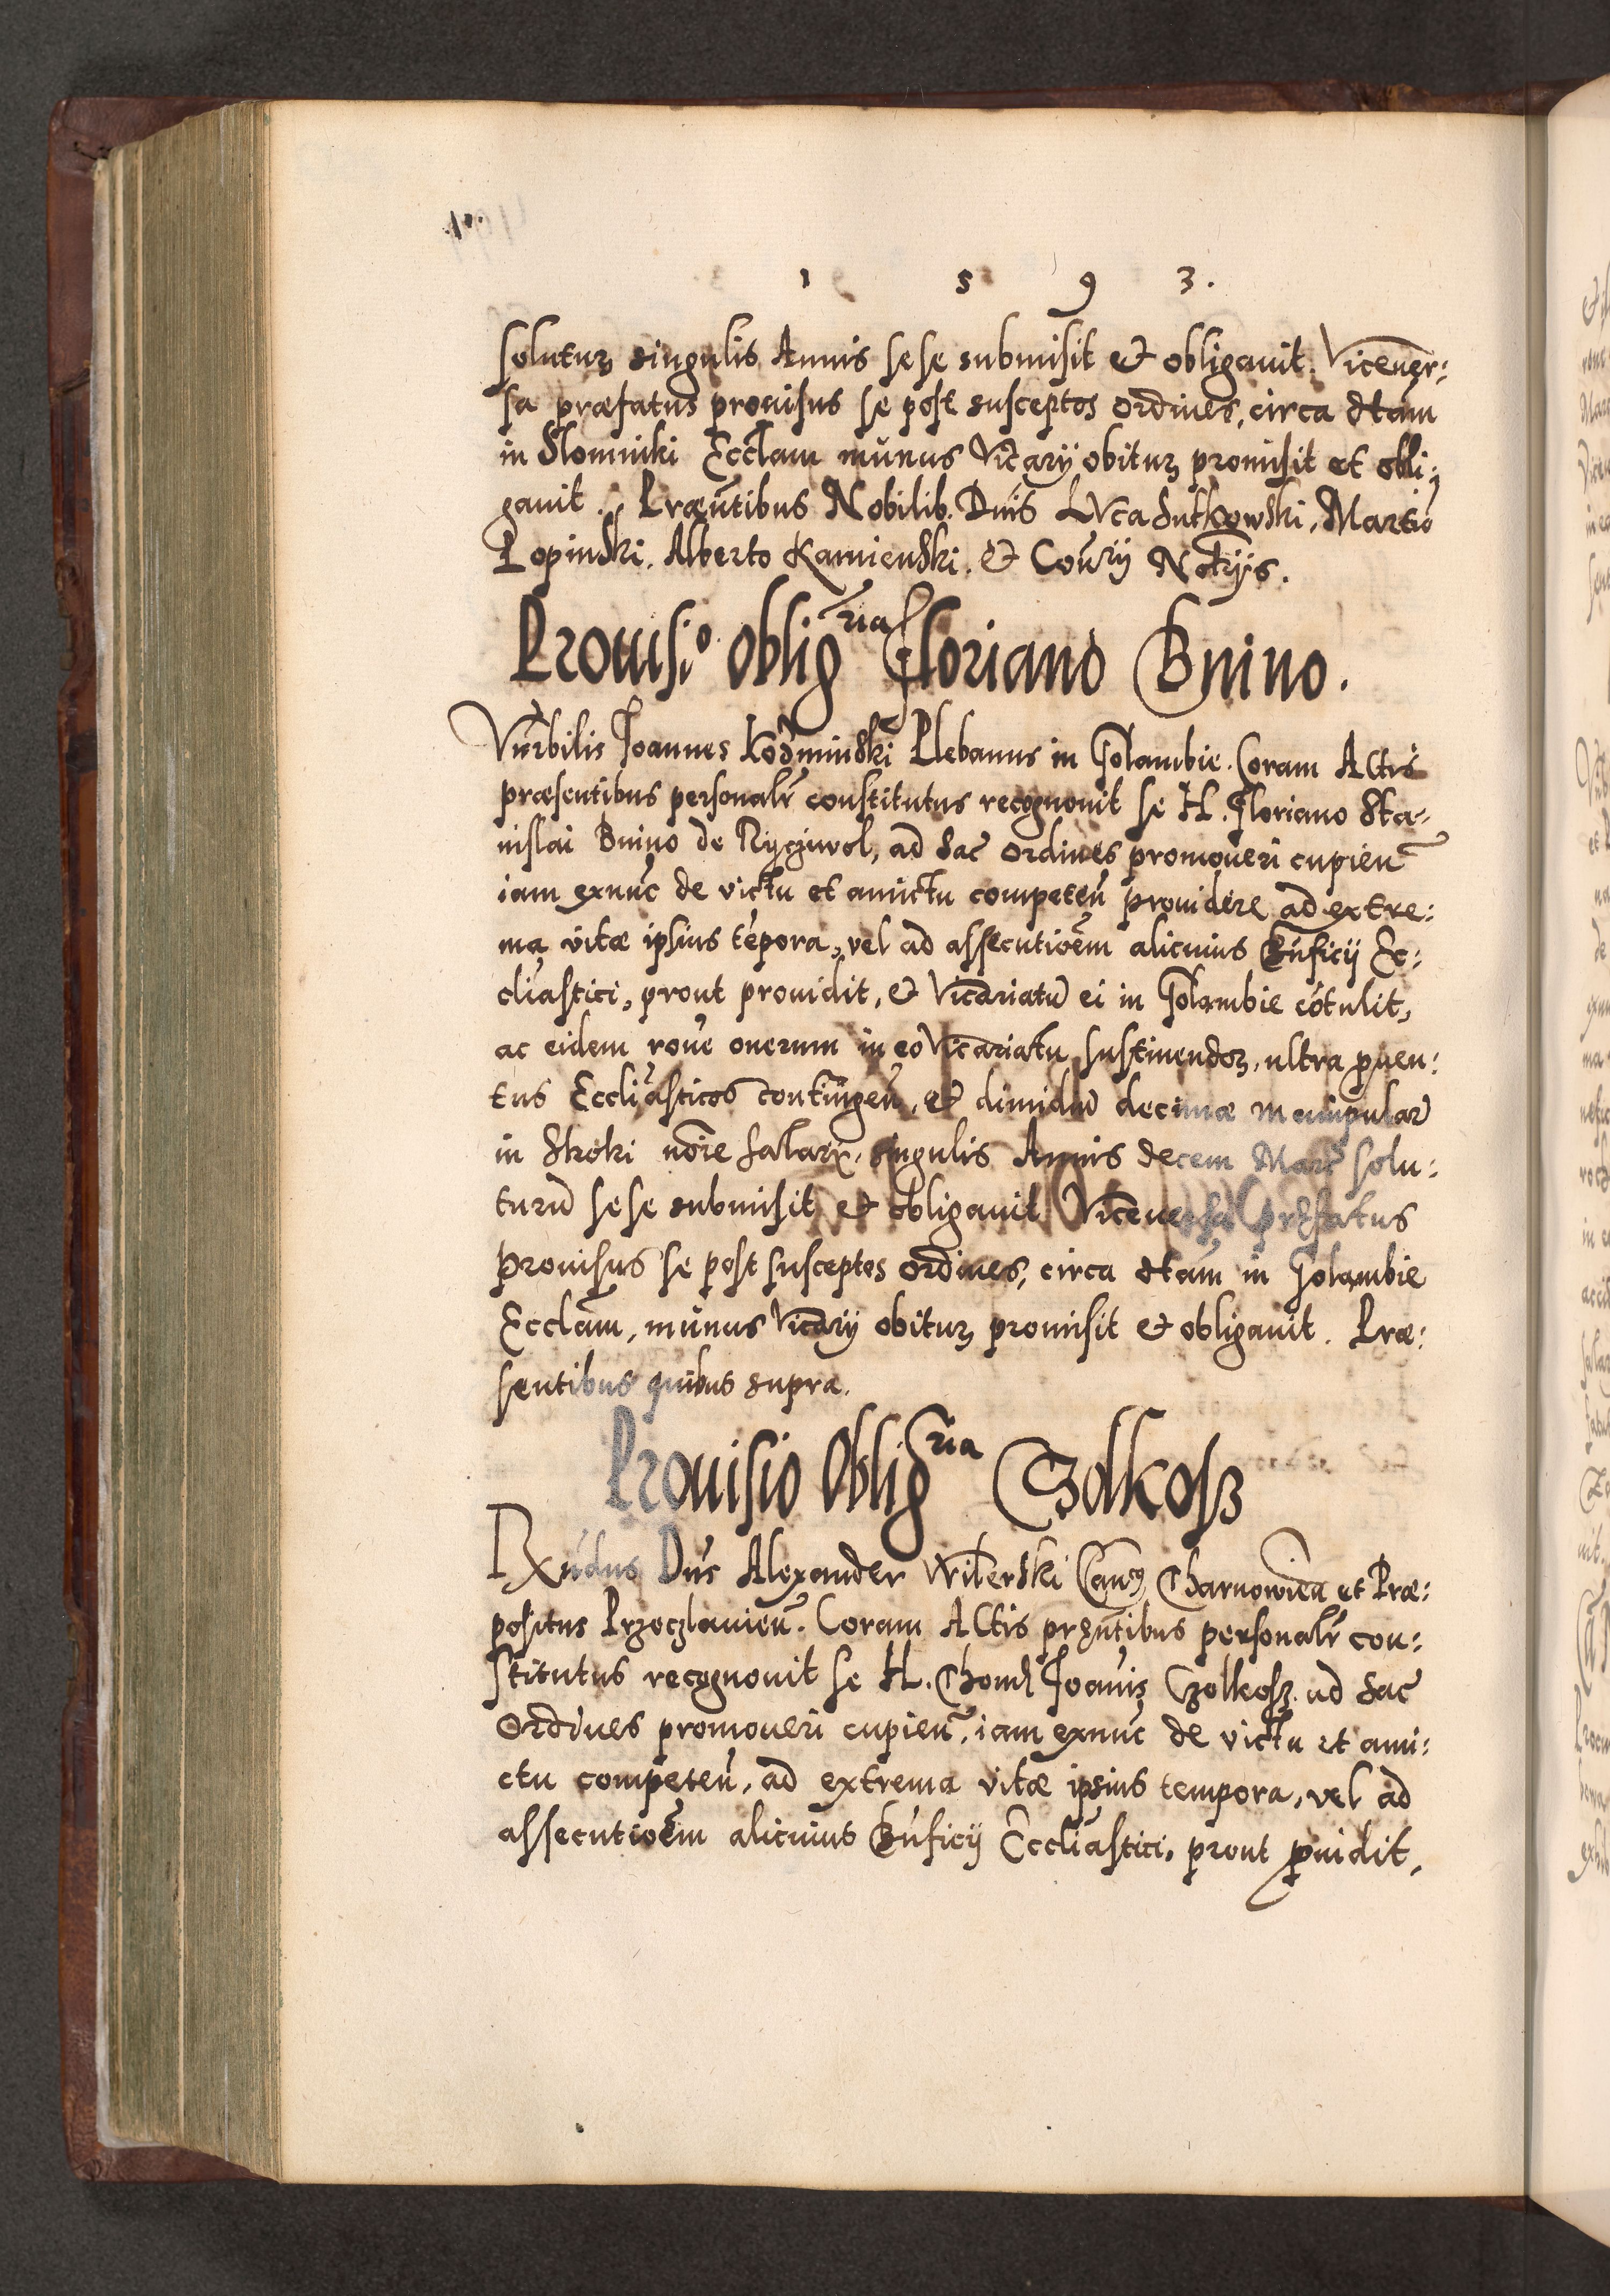 1 5 9 3.
soluturꝫ singulis Annis sese submisit et obligauit. Viceuer:
sa præfatus prouisus se post susceptos ordines, circa dtam
in Slomniki Eccl̃am munus Vicarÿ obiturꝫ promisit et obli:
gauit. Præn̄tibus Nobilib. Dn̄is Luca Sutkowski, Martiō
Lopinski. Alberto Kamienski. et Cou᷑rÿ Not᷑ijs.
Prouisio oblig^ria Floriano Bnino.
Vn̄rbilis Joannes Kodzminski Plebanus in Golambie. Coram Actis
præsentibus personalr̄ constitutus recognouit se H. Floriano Sta-
nislai Bnino de Ryczwol, ad Sac̄ ordines promoueri cupien̄
iam exnūc de victu et amictu competen̄ prouidere ad extre:
ma vitæ ipsius tēpora, vel ad assecutioēm alicuius Bn̄ficij Ec:
clīastici, prout prouidit, et Vicariatū ei in Golambie cōtulit,
ac eidem rōne onerum in eo Vicariatu sustinendoꝝ, ultra ꝓuen:
tus Ecclīasticos contingen̄, et dimidiū decimæ manipular̄
in Skoki nōie salarÿ singulis Annis decem Marc̄ solu:
turū sese submisit et obligauit Viceuersa præfatus
Prouisus se post susceptos ordines, circa dtam in Golambie
Eccl̃am, munus Vicarÿ obiturꝫ promisit et obligauit. Præ:
sentibus quibus supra.
Prouisio Oblig^ria Czolkosz
Rx̄ndus Dn̄s Alexander Witerski Can̄cꝰ Charnowien̄ et Præ:
positus Przeczlauien̄. Coram Actis pręn̄tibus personalr̄ con:
stitutus recognouit se H. Thom̄ Joan̄is Czolkosz ad Sac̄
Ordines promoueri cupien̄, iam exnūc de victu et ami:
ctu competen̄, ad extrema vitæ ipsius tempora, vel ad
assecutioēm alicuius Bn̄ficij Ecclīastici, prout ꝓuidit,